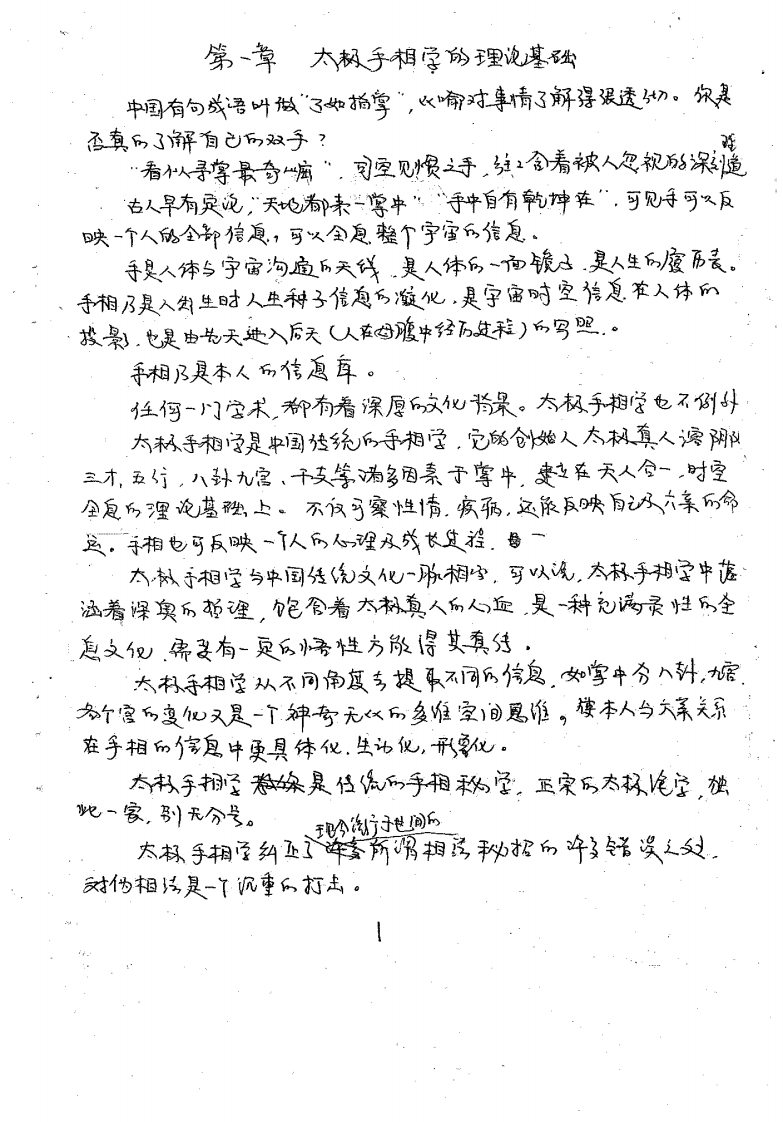 第一章 太极手相学的理论基础
中国有句成语叫做"了如指掌",比喻对事情了解得很透彻。你是
否真的了解自己的双手?
"看似寻常最奇崛",司空见惯之手,往往含着被人忽视的深刻道
理
古人早有灵说,"天地都来一掌中""手中自有乾坤在",可见手可以反
映一个人的全部信息,可以全息整个宇宙的信息。
手是人体与宇宙沟通的天线,是人体的一面镜子,是人生的履历表。
手相乃是人出生时人生种子信息的凝化,是宇宙时空信息在人体的
投影,也是由先天进入后天(人在母腹中经历过程)的写照。
手相乃是本人的信息库。
任何一门学术,都有着深厚的文化背景。太极手相学也不例外
太极手相学是中国传统的手相学,它的创始人太极真人溶阴阳
三才,五行,八卦九宫、干支等诸多因素于掌中,建立在天人合一,时空
全息的理论基础上。不仅可察性情,疾病,还能反映自己及六亲的命
运。手相也可反映一个人的心理及成长过程,
太极手相学与中国传统文化一脉相承,可以说,太极手相学中蕴
涵着深奥的哲理,饱含着太极真人的心血,是一种充满灵性的全
息文化,需要有一定的悟性方能得其真传。
太极手相学从不同角度去提取不同的信息,如掌中分八卦,九宫,
各个宫的变化又是一个神奇无比的多维空间思维。使本人与六亲关系
在手相的信息中更具体化,生动化,形象化。
太极手相学是传统的手相秘学,正宗的太极绝学,独
此一家,别无分号。
现今流行于世间的
太极手相学纠正了所谓相法秘招的许多错误之处,
对伪相法是一个沉重的打击。
1